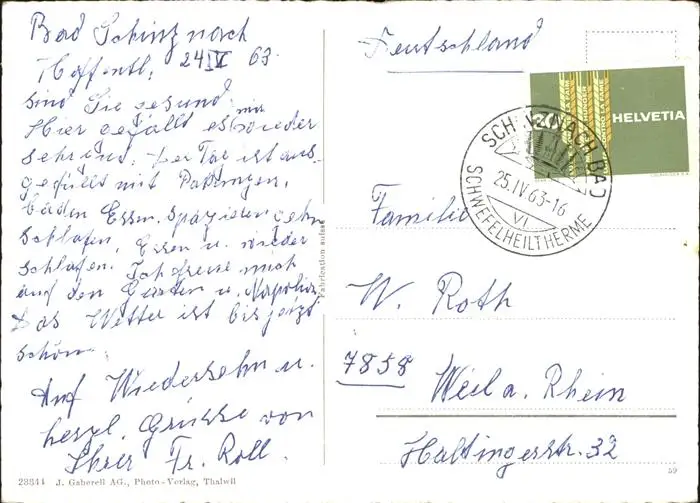 Bad Schinznach
24 IV 63.
Hoffentl.
sind Sie gesund.
Hier gefällt es mir wieder
sehr gut. Der Tag ist aus-
gefüllt mit Packungen,
baden Essen, spazieren gehn
schlafen, Essen u. wieder
schlafen. Ich freue mich
auf den Garten u.
Das Wetter ist bis jetzt
schön.
Auf Wiedersehn u.
herzl. Grüsse von
Ihrer Fr. Roll.
23344 J. Gaberell AG., Photo-Verlag, Thalwil
Fabrication suisse
Deutschland
HELVETIA
SCHINZNACH BAD
25.IV.63-16
VI
SCHWEFELHEILTHERME
Familie
W. Roth
7858
Weil a. Rhein
Haltingerstr. 32
59